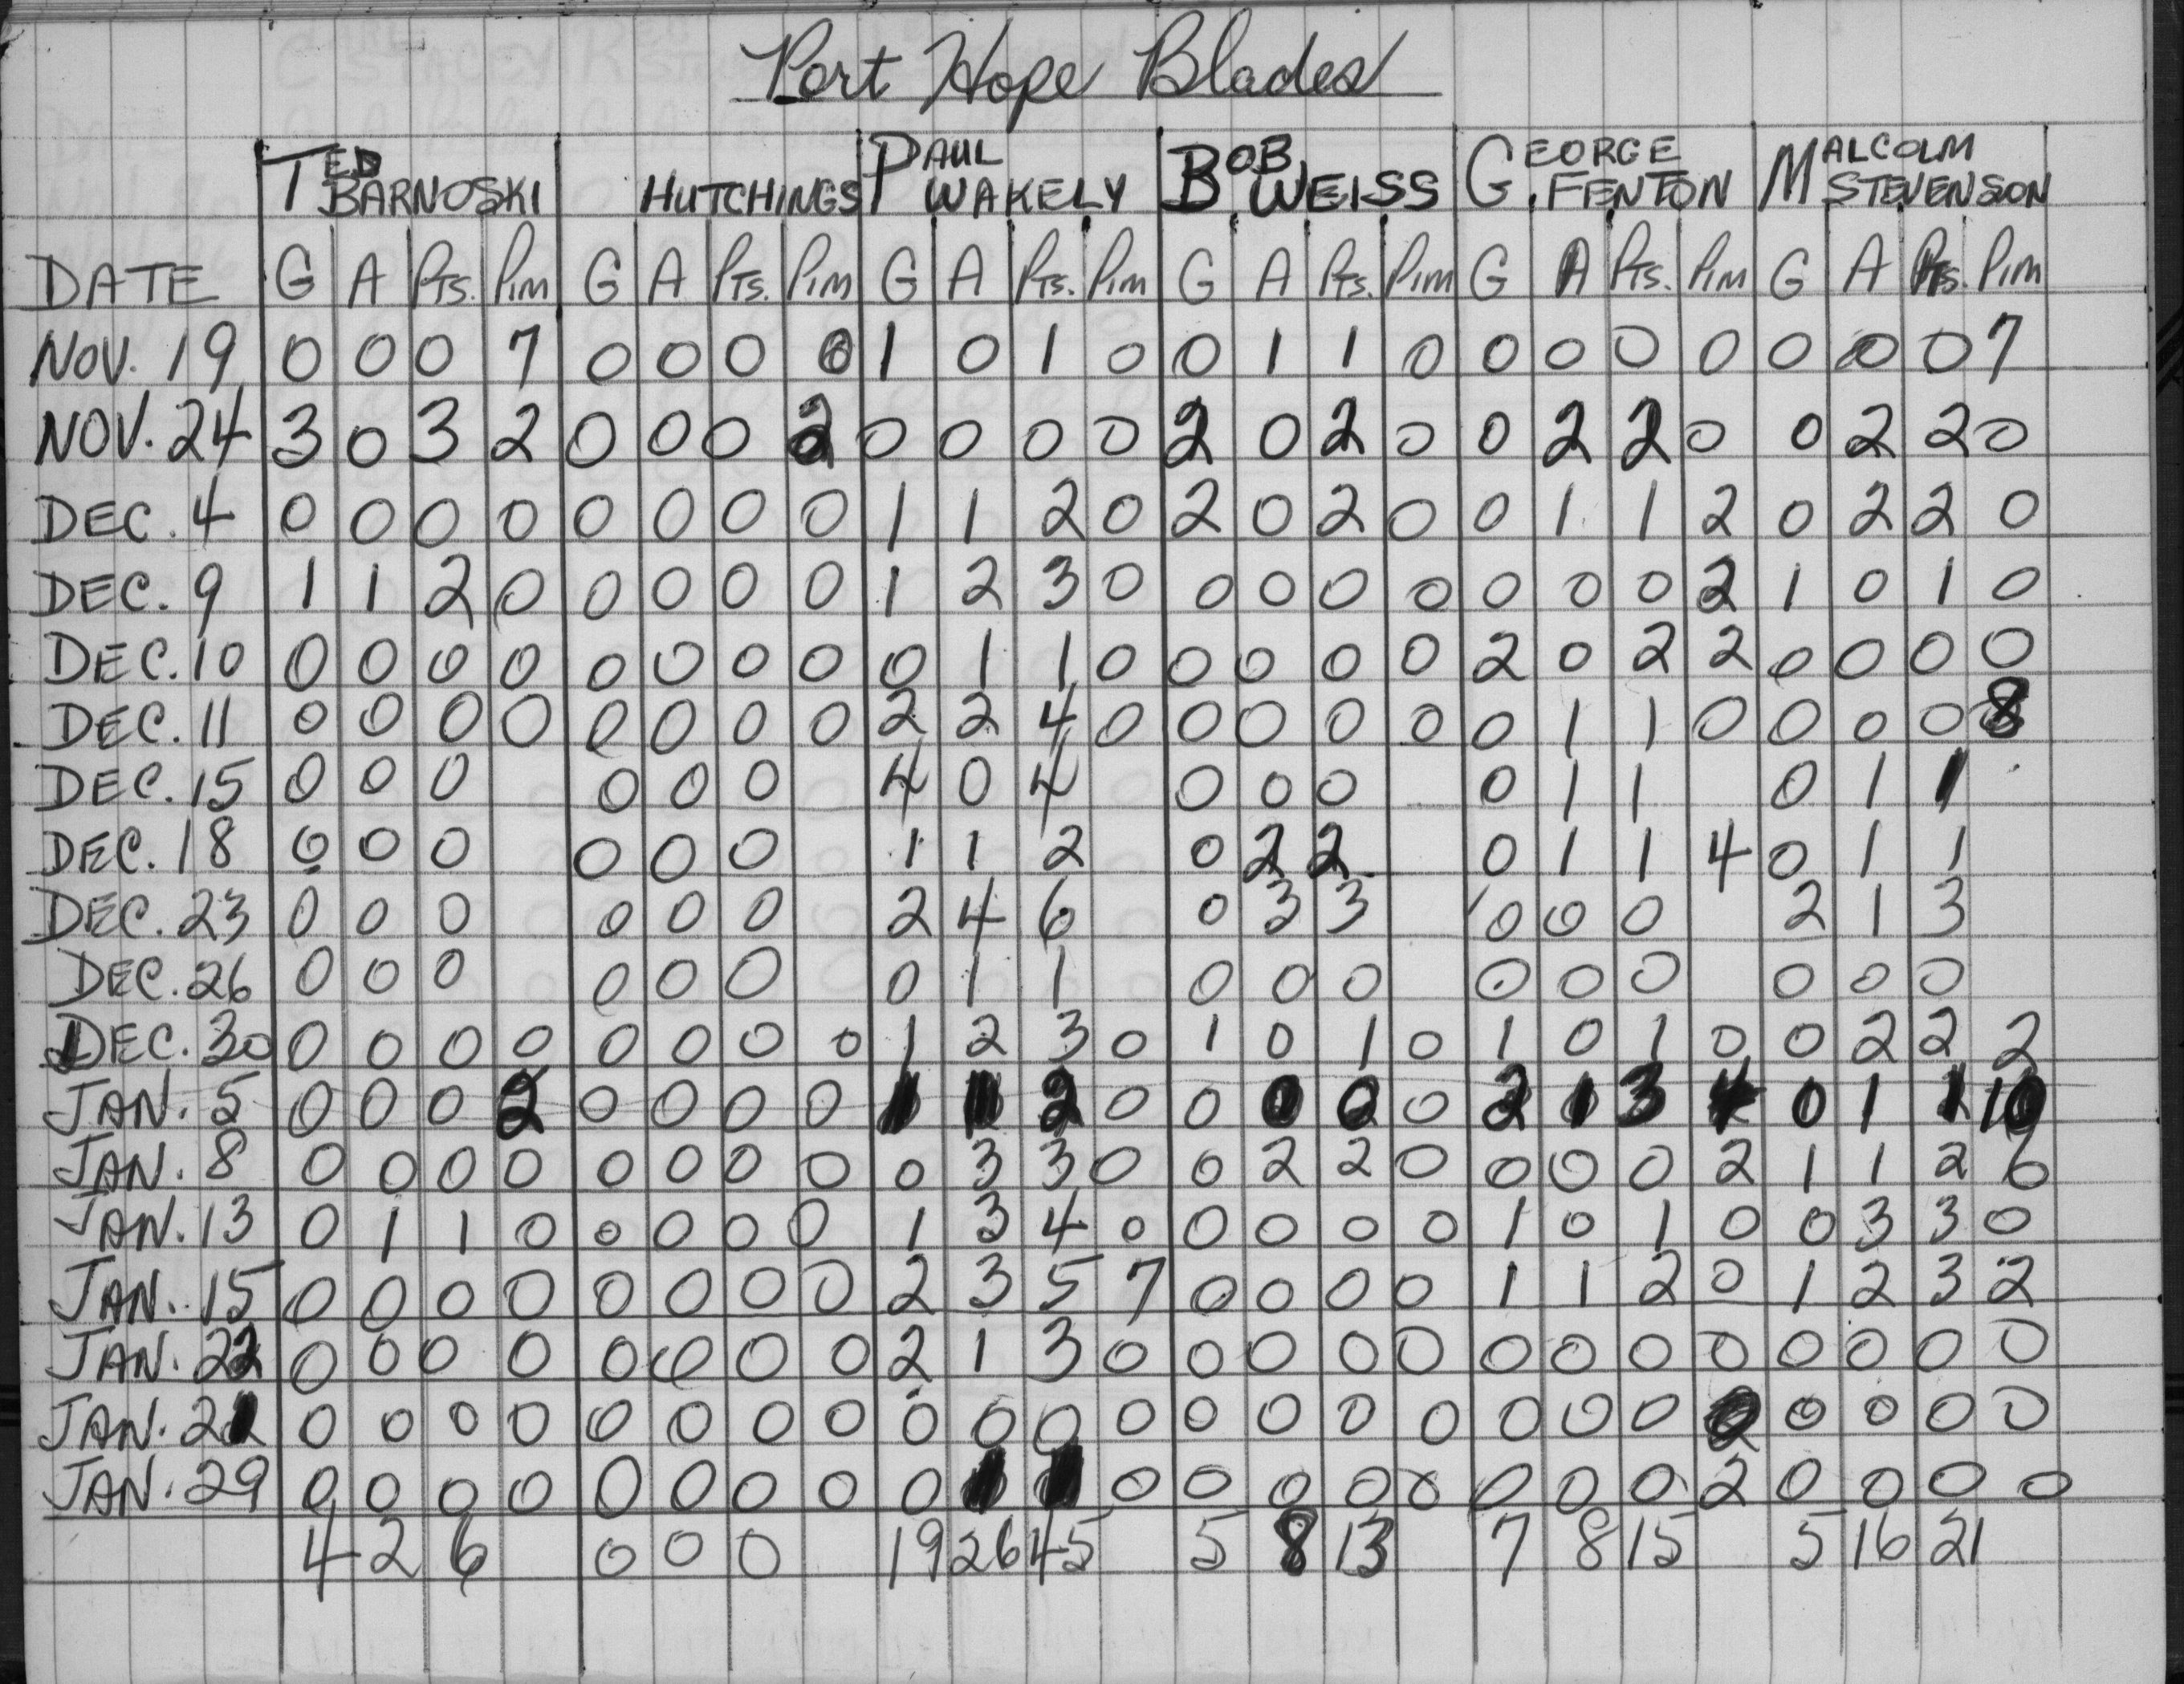 Port Hope Blades
TED BARNOSKI HUTCHINGS PAUL WAKELY BOB WEISS GEORGE FENTON MALCOLM STEVENSON
DATE G A PTS. PIM G A PTS. PIM G A PTS. PIM G A PTS. PIM G A PTS. PIM G A PTS. PIM
NOV. 19 0 0 0 7 0 0 0 0 1 0 1 0 0 1 1 0 0 0 0 0 0 0 0 7
NOV. 24 3 0 3 2 0 0 0 2 0 0 0 0 2 0 2 0 0 2 2 0 0 2 2 0
DEC. 4 0 0 0 0 0 0 0 0 1 1 2 0 2 0 2 0 0 1 1 2 0 2 2 0
DEC. 9 1 1 2 0 0 0 0 0 1 2 3 0 0 0 0 0 0 0 0 2 1 0 1 0
DEC. 10 0 0 0 0 0 0 0 0 0 1 1 0 0 0 0 0 2 0 2 2 0 0 0 0
DEC. 11 0 0 0 0 0 0 0 0 2 2 4 0 0 0 0 0 0 1 1 0 0 0 0 8
DEC. 15 0 0 0 0 0 0 4 0 4 0 0 0 0 1 1 0 1 1
DEC. 18 0 0 0 0 0 0 1 1 2 0 2 2 0 1 1 4 0 1 1
DEC. 23 0 0 0 0 0 0 2 4 6 0 3 3 0 0 0 2 1 3
DEC. 26 0 0 0 0 0 0 0 1 1 0 0 0 0 0 0 0 0 0
DEC. 30 0 0 0 0 0 0 0 0 1 2 3 0 1 0 1 0 1 0 1 0 0 2 2 2
JAN. 5 0 0 0 2 0 0 0 0 1 1 2 0 0 0 0 0 2 1 3 4 0 1 1 10
JAN. 8 0 0 0 0 0 0 0 0 0 3 3 0 0 2 2 0 0 0 0 2 1 1 2 6
JAN. 13 0 1 1 0 0 0 0 0 1 3 4 0 0 0 0 0 1 0 1 0 0 3 3 0
JAN. 15 0 0 0 0 0 0 0 0 2 3 5 7 0 0 0 0 1 1 2 0 1 2 3 2
JAN. 22 0 0 0 0 0 0 0 0 2 1 3 0 0 0 0 0 0 0 0 0 0 0 0 0
JAN. 21 0 0 0 0 0 0 0 0 0 0 0 0 0 0 0 0 0 0 0 0 0 0 0
JAN. 29 0 0 0 0 0 0 0 0 0 1 1 0 0 0 0 0 0 0 0 2 0 0 0 0
4 2 6 0 0 0 19 26 45 5 8 13 7 8 15 5 16 21